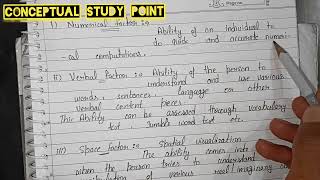 CONCEPTUAL STUDY POINT
i) Numerical factor :- Ability of an individual to
do quick and accurate numeri-
-cal computations.
ii) Verbal Factor :- Ability of the person to
understand and use various
words, sentences, language or other
verbal content pieces
This Ability can be assessed through vocabulary
test, Jumble word test etc.
iii) Space factor :- Spatial visualization
The ability comes into
when the person tries to understand
of various